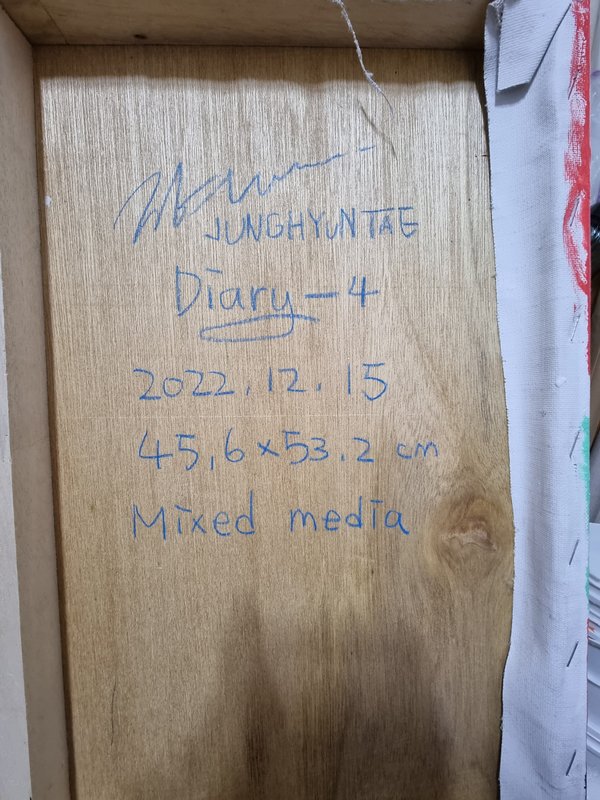 JUNGHYUNTAE
Diary-4
2022.12.15
45,6x53.2 cm
Mixed media